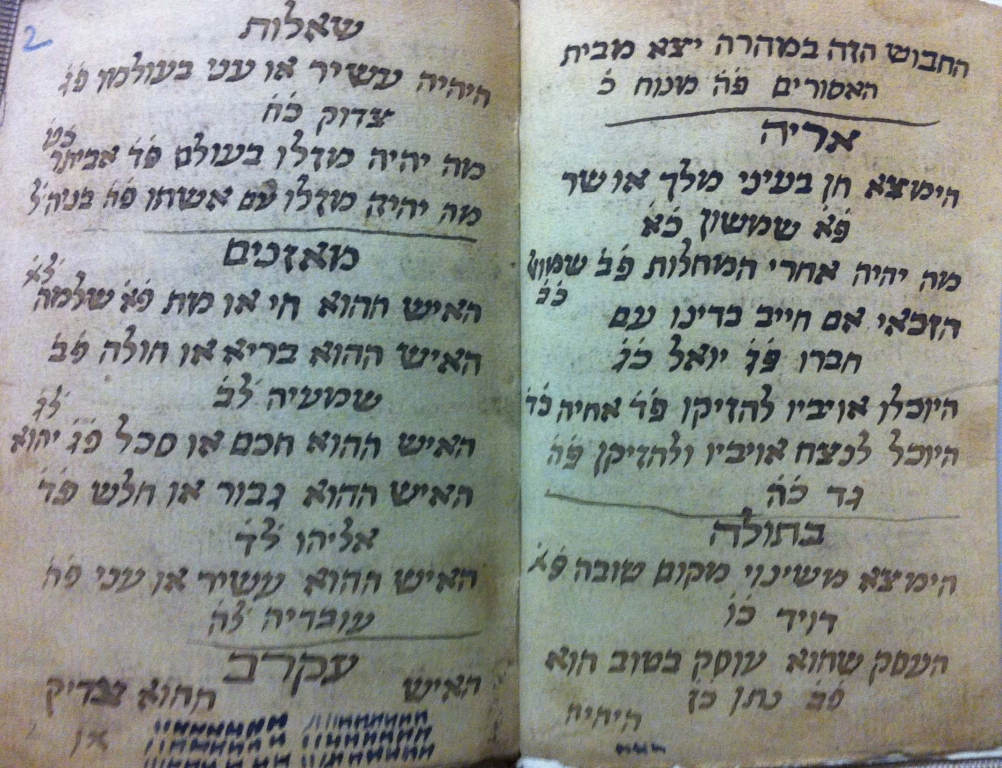 החבוש הזה במהרה יצא מבית
האסורים פה מנוח כ
אריה
הימצא חן בעיני מלך או שר
פא שמשון כא
מה יהיה אחרי המחלות פב שמואל
כב
הזכאי אם חייב בדינו עם
חברו פג יואל כג
היוכלו אויביו להזיקו פד אחיה כד
היוכל לנצח אויביו ולהזיקן פה
גד כה
בתולה
הימצא משינוי מקום טובה פא
דויד כו
העסק שהוא עוסק בטוב הוא
פב נתן כז
היהיה
2
שאלות
היהיה עשיר או עני בעולמו פג
צדוק כח
כט
מה יהיה מזלו בעולם פד אביתר
מה יהיה מזלו עם אשתו פה בניה ל
מאזנים
לא
האיש ההוא חי או מת פא שלמה
האיש ההוא בריא או חולה פב
שמעיה לב
לג
האיש ההוא חכם או סכל פג יהוא
האיש ההוא גבור או חלש פד
אליהו לד
האיש ההוא עשיר או עני פה
עובדיה לה
עקרב
האיש ההוא צדיק
או